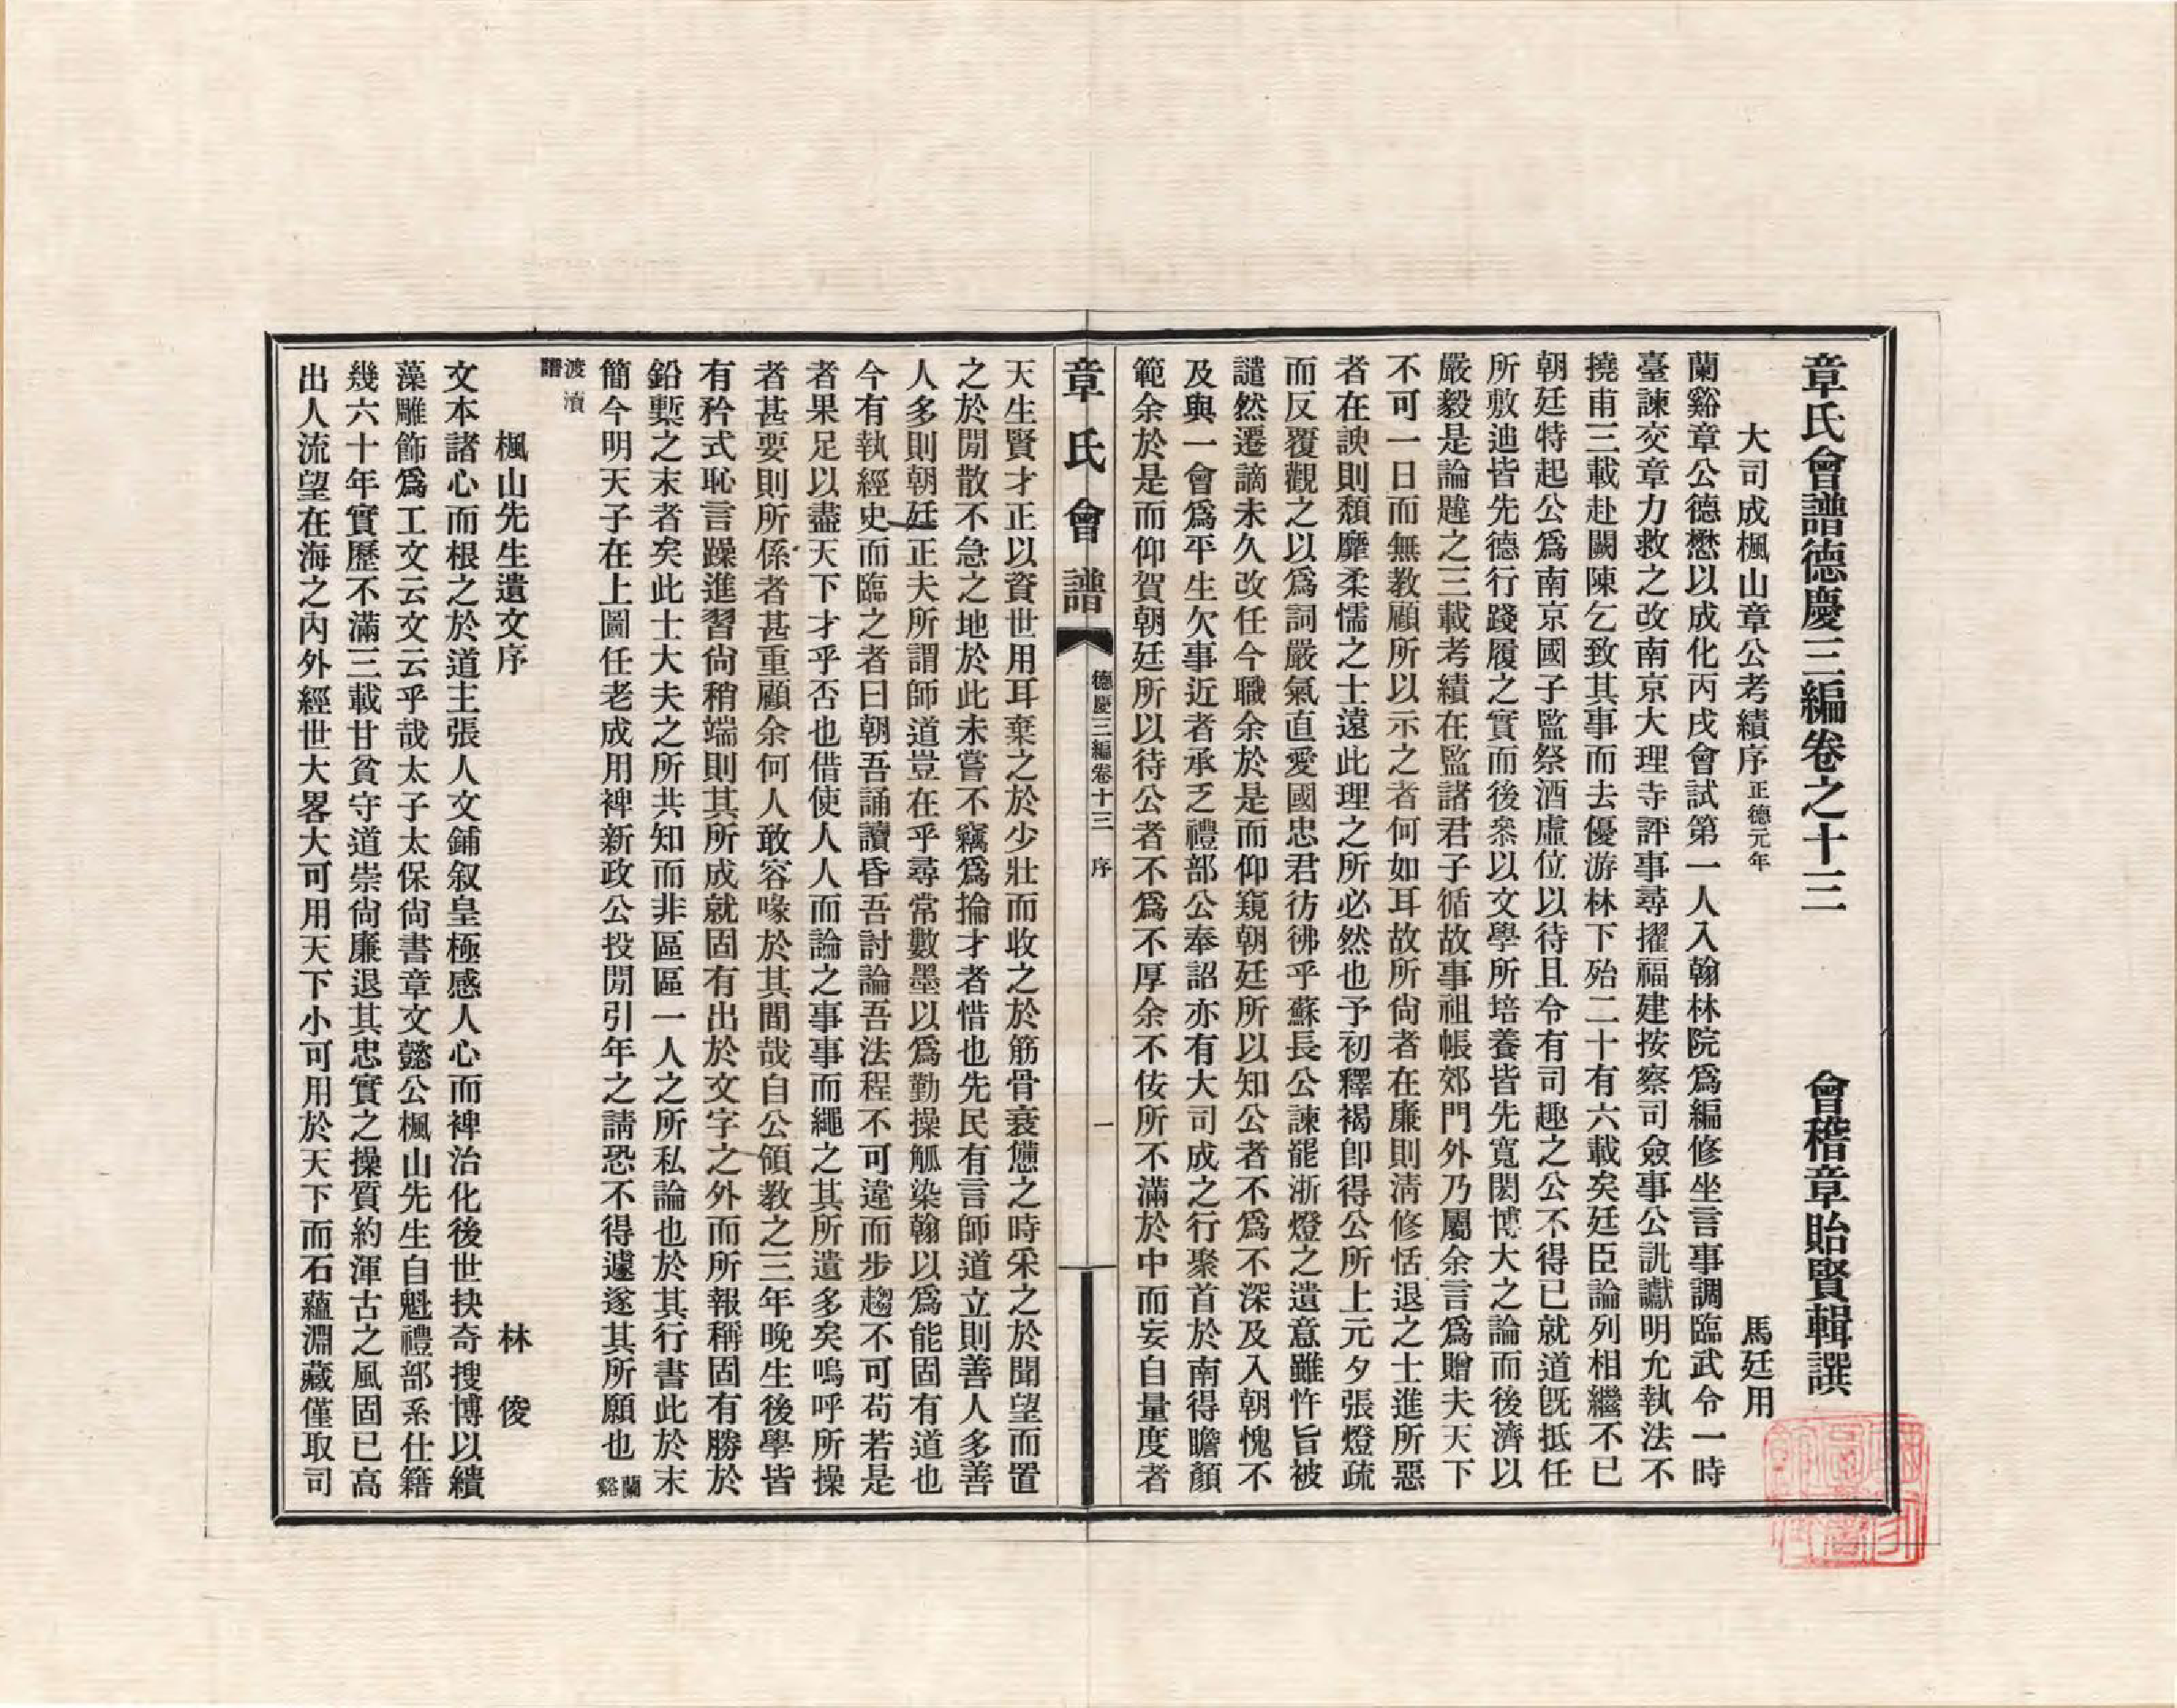 章氏會譜德慶三編卷之十三　會稽章貽賢輯譔
大司成楓山章公考績序正德元年　馬廷用
蘭谿章公德懋以成化丙戌會試第一人入翰林院爲編修坐言事調臨武令一時
臺諫交章力救之改南京大理寺評事尋擢福建按察司僉事公訊讞明允執法不
撓甫三載赴闕陳乞致其事而去優游林下殆二十有六載矣廷臣論列相繼不已
朝廷特起公爲南京國子監祭酒虛位以待且令有司趣之公不得已就道旣抵任
所敷迪皆先德行踐履之實而後叅以文學所培養皆先寬閎博大之論而後濟以
嚴毅是論韙之三載考績在監諸君子循故事祖帳郊門外乃屬余言爲贈夫天下
不可一日而無教顧所以示之者何如耳故所尙者在廉則淸修恬退之士進所惡
者在諛則頽靡柔懦之士遠此理之所必然也予初釋褐卽得公所上元夕張燈疏
而反覆觀之以爲詞嚴氣直愛國忠君彷彿乎蘇長公諫罷浙燈之遺意雖忤旨被
譴然遷謫未久改任今職余於是而仰窺朝廷所以知公者不爲不深及入朝愧不
及與一會爲平生欠事近者承乏禮部公奉詔亦有大司成之行聚首於南得瞻顏
範余於是而仰賀朝廷所以待公者不爲不厚余不佞所不滿於中而妄自量度者
章氏會譜　德慶三編卷十三　序　一
天生賢才正以資世用耳棄之於少壯而收之於筋骨衰憊之時采之於聞望而置
之於閒散不急之地於此未嘗不竊爲掄才者惜也先民有言師道立則善人多善
人多則朝廷正夫所謂師道豈在乎尋常數墨以爲勤操觚染翰以爲能固有道也
今有執經史而臨之者曰朝吾誦讀昏吾討論吾法程不可違而步趨不可苟若是
者果足以盡天下才乎否也借使人人而論之事事而繩之其所遺多矣嗚呼所操
者甚要則所係者甚重顧余何人敢容喙於其間哉自公領敎之三年晚生後學皆
有矜式恥言躁進習尙稍端則其所成就固有出於文字之外而所報稱固有勝於
鉛槧之末者矣此士大夫之所共知而非區區一人之所私論也於其行書此於末
簡今明天子在上圖任老成用裨新政公投閒引年之請恐不得遽遂其所願也蘭谿
渡瀆譜
楓山先生遺文序　林俊
文本諸心而根之於道主張人文鋪叙皇極感人心而裨治化後世抉奇搜博以繢
藻雕飾爲工文云文云乎哉太子太保尙書章文懿公楓山先生自魁禮部系仕籍
幾六十年實歷不滿三載甘貧守道崇尙廉退其忠實之操質約渾古之風固已高
出人流望在海之內外經世大畧大可用天下小可用於天下而石蘊淵藏僅取司